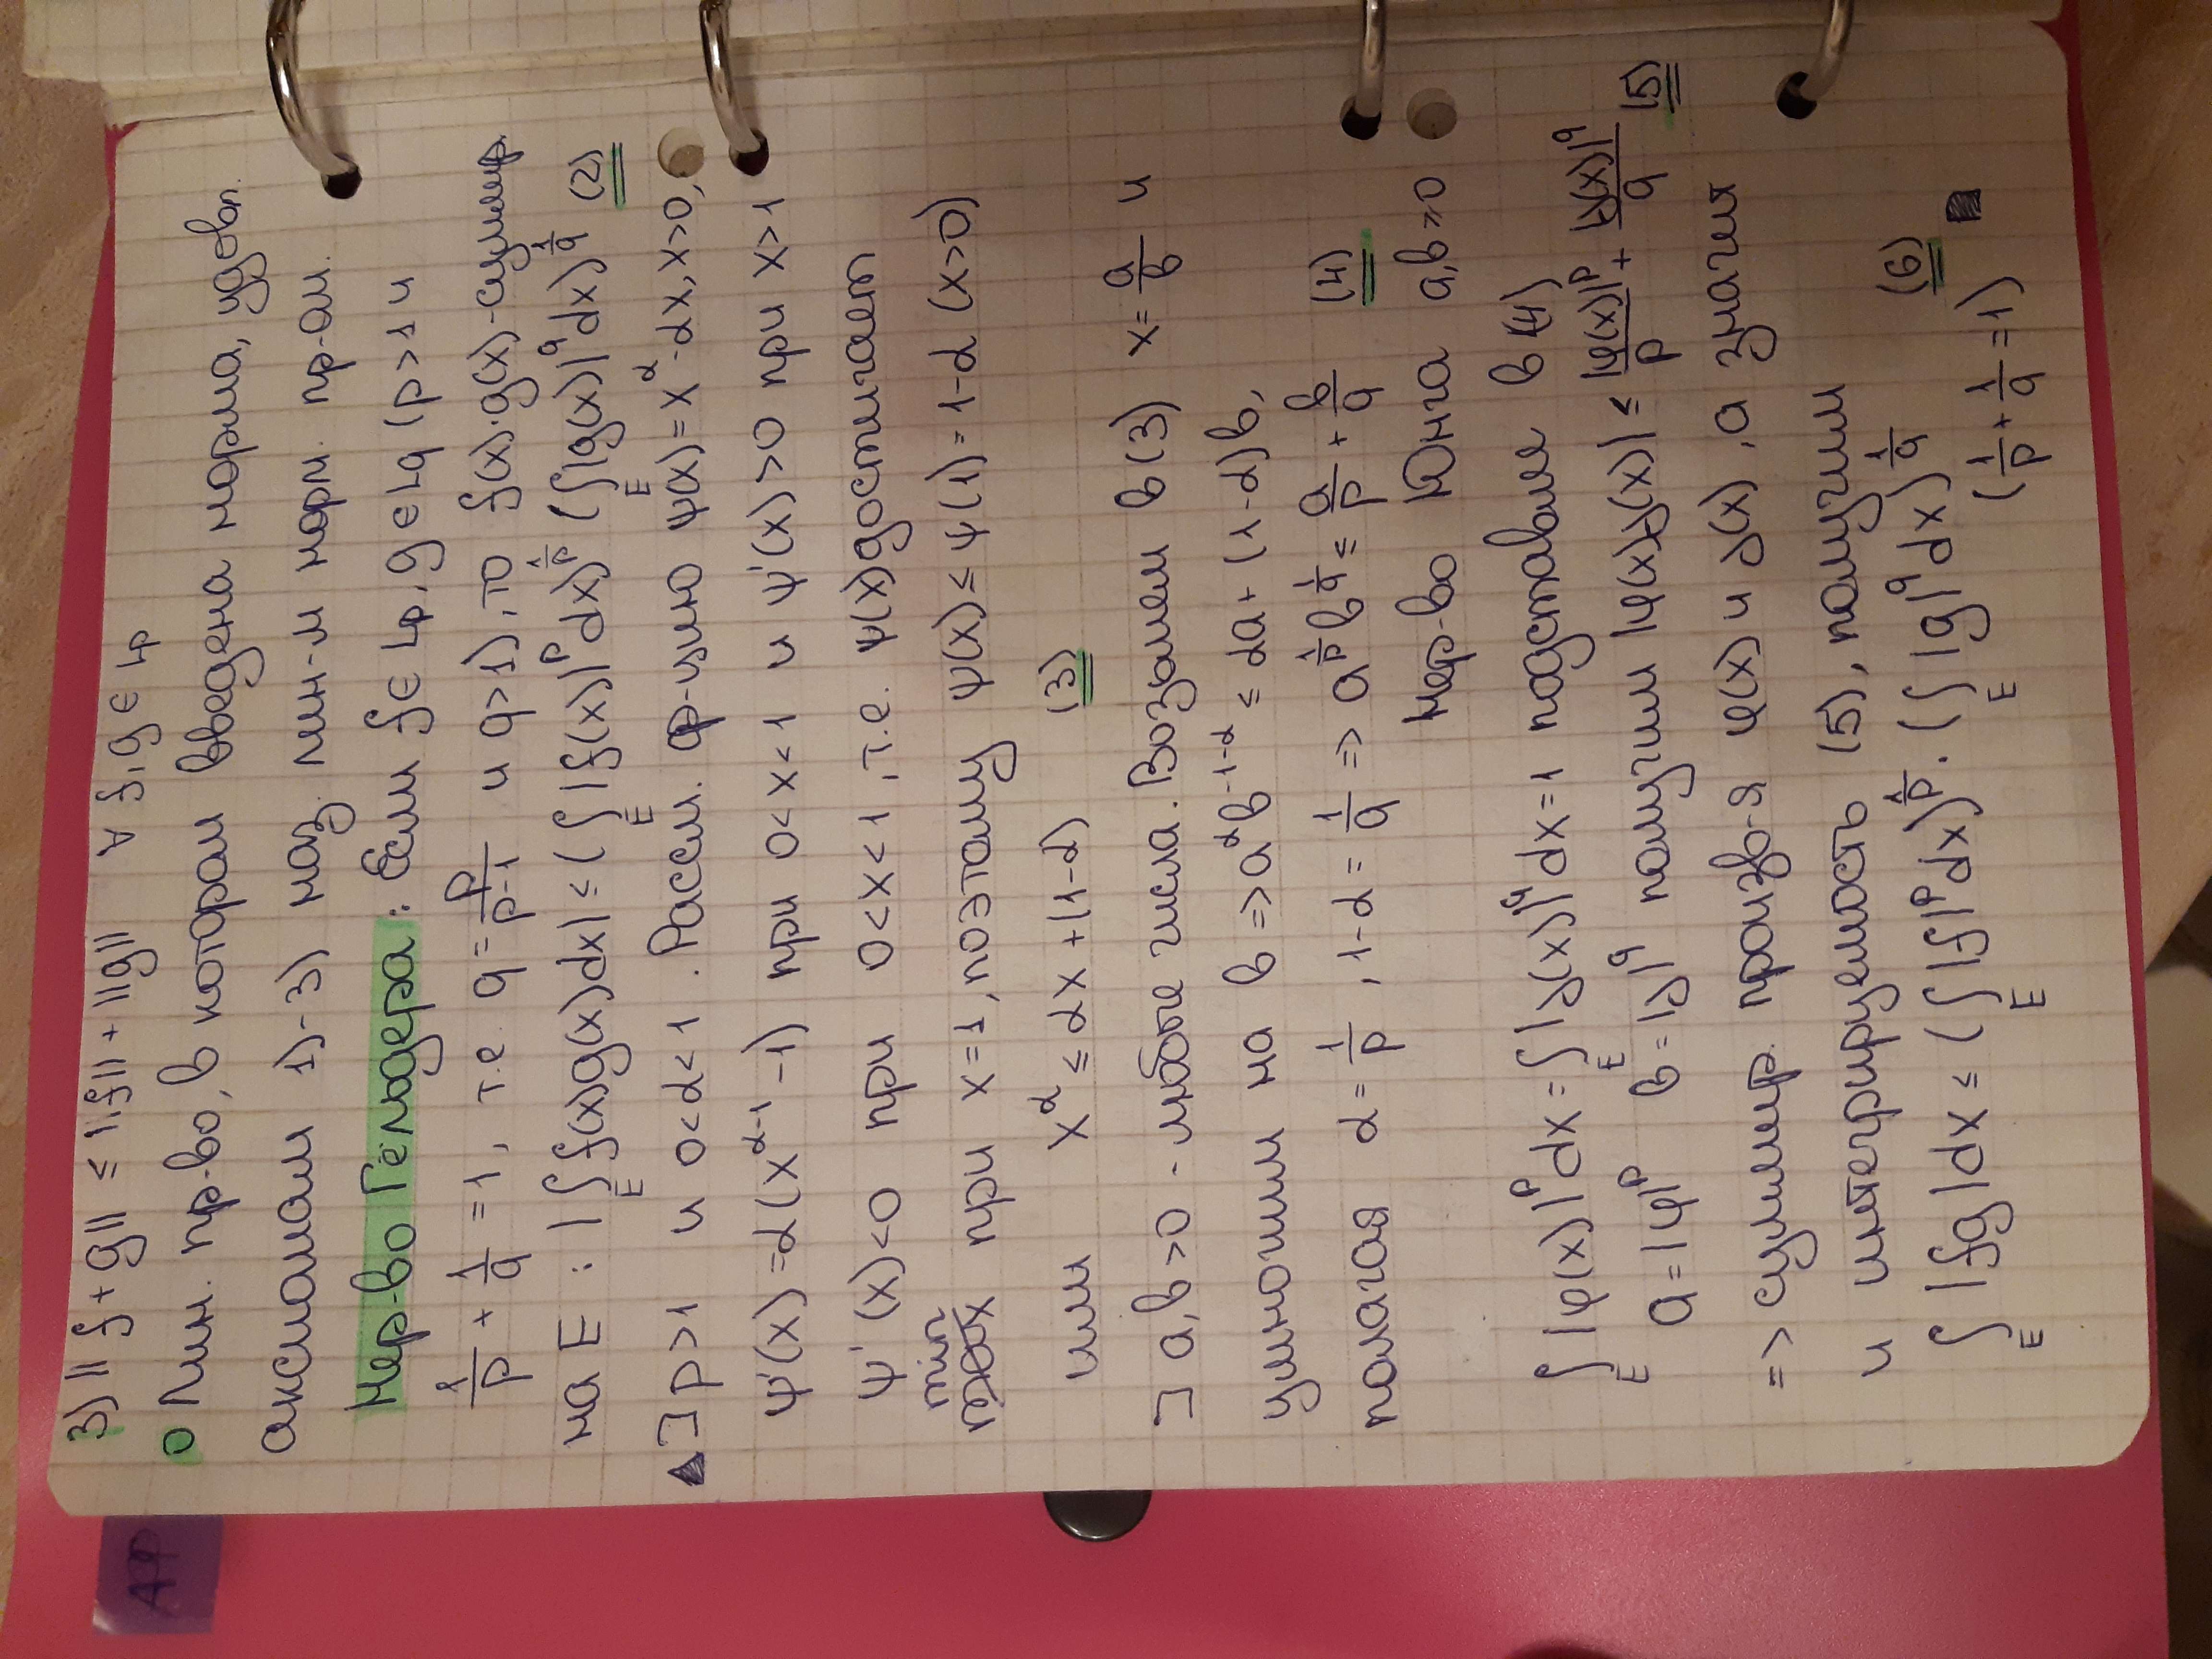 3) ||f+g|| ≤ ||f|| + ||g|| ∀ f,g ∈ Lp
0 Лин. пр-во, в котором введена норма, удовл.
аксиомам 1)-3) наз. лин-м норм. пр-ом.
Нер-во Гёльдера: Если f ∈ Lp, g ∈ Lq (p>1 и
1/p + 1/q = 1, т.е. q = p/(p-1) и q>1), то f(x)·g(x)-суммир.
на E: |∫_E f(x)g(x)dx| ≤ (∫_E |f(x)|^p dx)^(1/p) (∫_E |g(x)|^q dx)^(1/q) (2)
▲ ] p>1 и 0<α<1. Рассм. ф-цию ψ(x)=x^α-αx, x>0,
ψ'(x)=α(x^(α-1)-1) при 0<x<1 и ψ'(x)>0 при x>1
ψ'(x)<0 при 0<x<1, т.е. ψ(x) достигает
min
max при x=1, поэтому ψ(x) ≤ ψ(1)=1-α (x>0)
или x^α ≤ αx+(1-α) (3)
] a,b>0 - любые числа. Возьмем в (3) x=a/b и
умножим на b => a^α b^(1-α) ≤ αa+(1-α)b,
полагая α=1/p, 1-α=1/q => a^(1/p) b^(1/q) ≤ a/p + b/q (4)
Нер-во Юнга a,b≥0
∫_E |φ(x)|^p dx = ∫_E |γ(x)|^q dx = 1 подставим в (4)
a=|φ|^p b=|γ|^q получим |φ(x)γ(x)| ≤ |φ(x)|^p/p + |γ(x)|^q/q (5)
=> суммир. произв-я φ(x) и γ(x), а значит
и интегрируемость (5), получим
∫_E |fg|dx ≤ (∫_E |f|^p dx)^(1/p) · (∫_E |g|^q dx)^(1/q) (6)
(1/p + 1/q = 1) ■
АФ